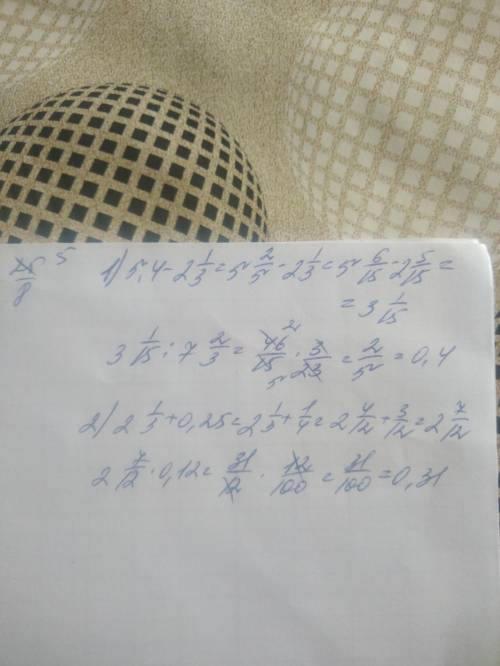 25/8 5
1) 5,4 - 2 1/3 = 5 2/5 - 2 1/3 = 5 6/15 - 2 5/15 =
= 3 1/15
3 1/15 : 7 2/3 = 46/15 · 3/23 = 2/5 = 0,4
2) 2 1/3 + 0,25 = 2 1/3 + 1/4 = 2 4/12 + 3/12 = 2 7/12
2 7/12 · 0,12 = 31/12 · 12/100 = 31/100 = 0,31